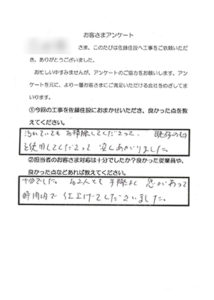 お客さまアンケート
さま、このたびは佐藤住設へ工事をご依頼いただき、ありがとうございました。
お忙しいかすみませんが、アンケートのご協力をお願いします。アンケートを元に、より一層お客さまにご満足いただける会社をめざしてまいります。
①今回の工事を佐藤住設におまかせいただき、良かった点を教えてください。
汚れていてもお掃除してくださったり、既存の物
を使用してくださって 安くあがりました。
②担当者のお客さま対応は十分でしたか？良かった従業員や、良かった点などあれば教えてください。
十分でした。お2人とも手際よく 息があって
時間内で仕上げてくださいました。